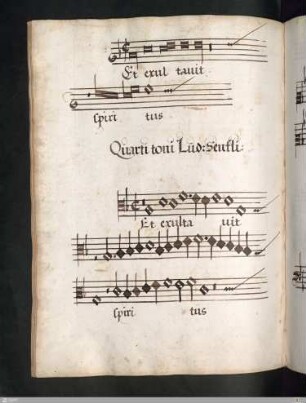 Et exul tavit
spiri tus
Quarti toni Lud: Senfli:
Et exulta vit
spiri tus